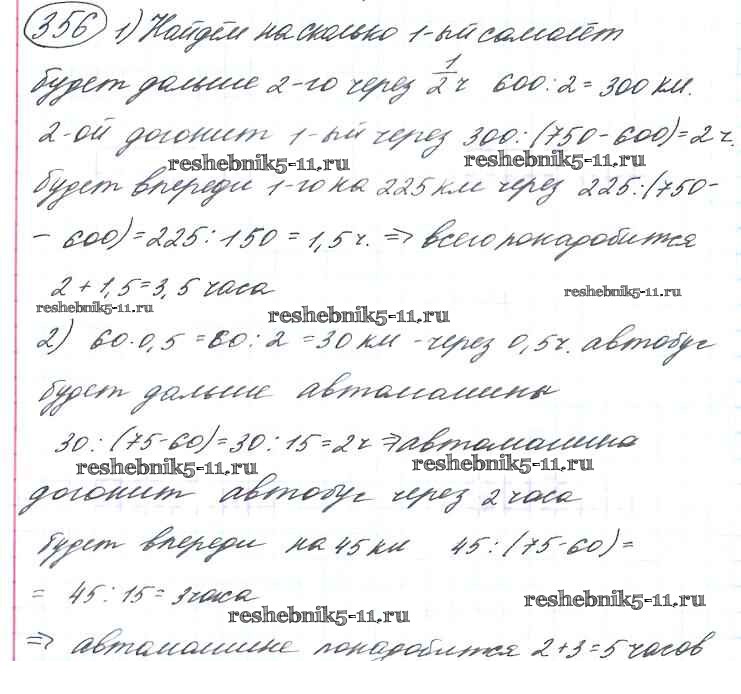 356 1) Найдём на сколько 1-ый самолёт
будет дальше 2-го через 1/2 ч 600:2=300 км.
2-ой догонит 1-ый через 300:(750-600)=2 ч.
reshebnik5-11.ru reshebnik5-11.ru
будет впереди 1-го на 225 км через 225:(750-
- 600)=225:150=1,5 ч. ⇒ всего понадобится
2+1,5=3,5 часа
reshebnik5-11.ru reshebnik5-11.ru reshebnik5-11.ru
2) 60·0,5=60:2=30 км - через 0,5 ч. автобус
будет дальше автомашины
30:(75-60)=30:15=2 ч ⇒ автомашина
reshebnik5-11.ru reshebnik5-11.ru
догонит автобус через 2 часа
будет впереди на 45 км 45:(75-60)=
= 45:15=3 часа
reshebnik5-11.ru reshebnik5-11.ru
⇒ автомашине понадобится 2+3=5 часов